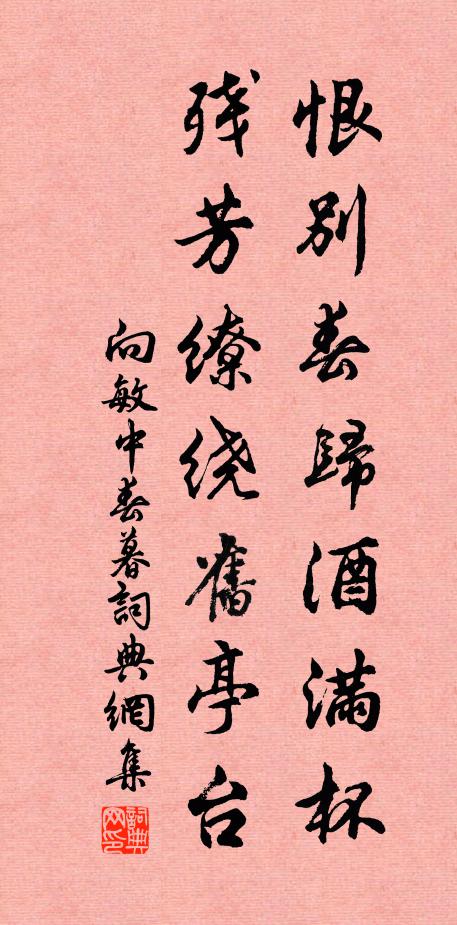 恨别春歸酒滿杯
残芳繚绕舊亭台
向敏中春暮詞典網集
詞典网印